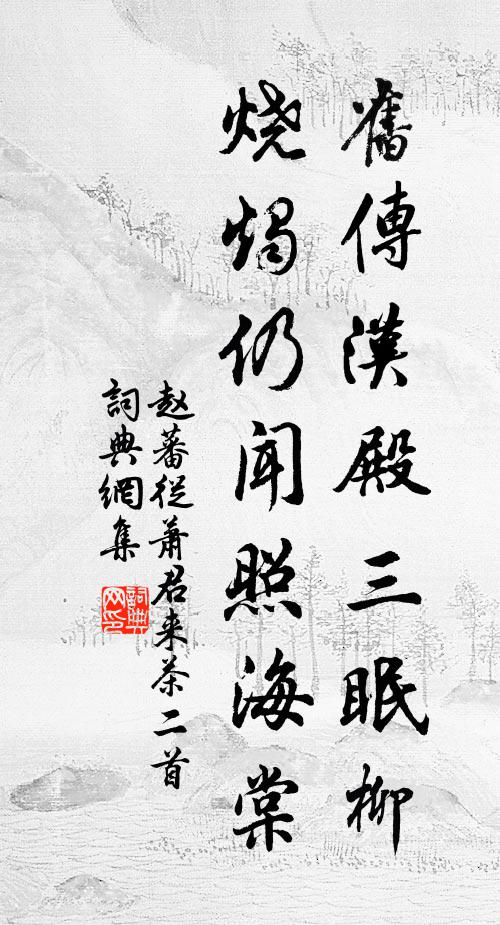 舊傳漢殿三眠柳
烧燭仍闻照海棠
赵蕃從蕭君来茶二首
詞典網集
詞典網印